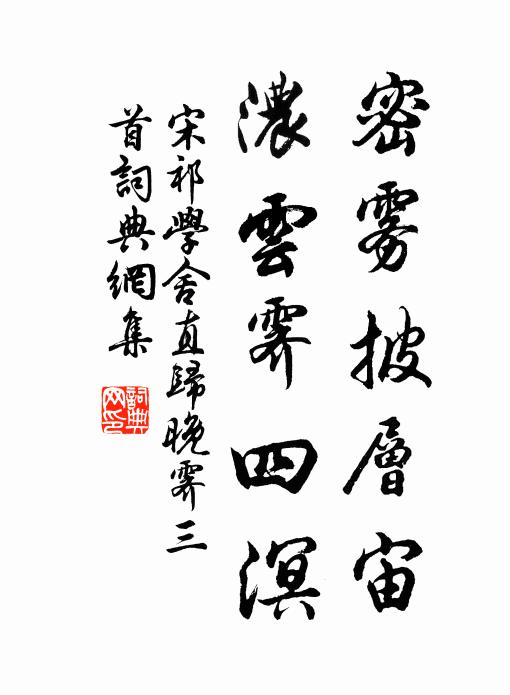 密雾披層宙
濃雲霽四溟
宋祁學舍直歸晚霽三
首詞典網集
詞典网印